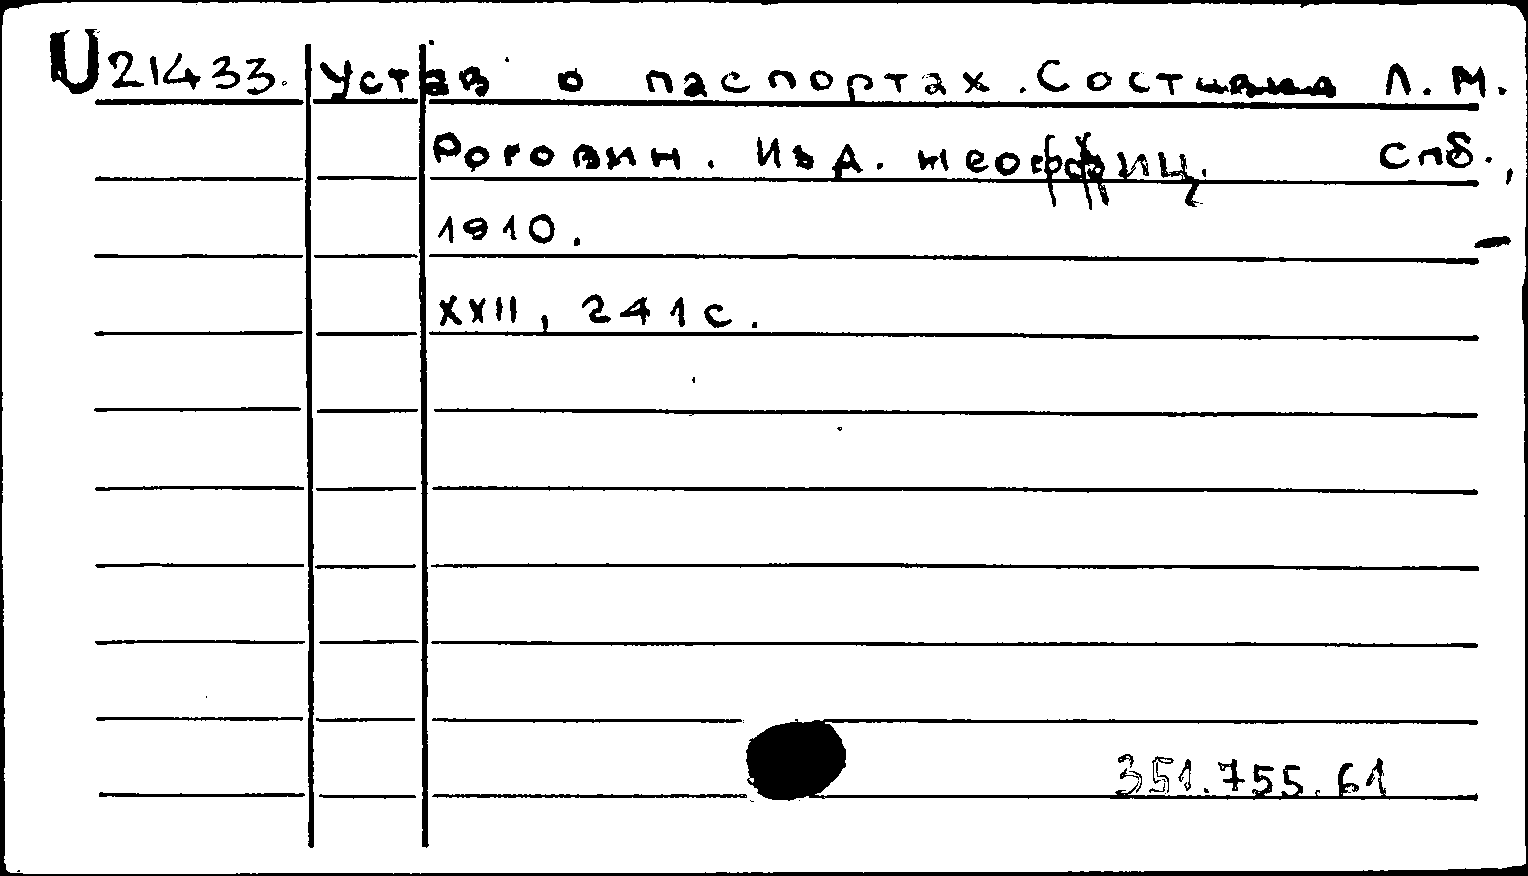 U21433. Устав о паспортах. Состави Л. М.
Роговин. Изд. неоффиц. Спб.,
1910. -
XXII, 241 с.
351.755.61